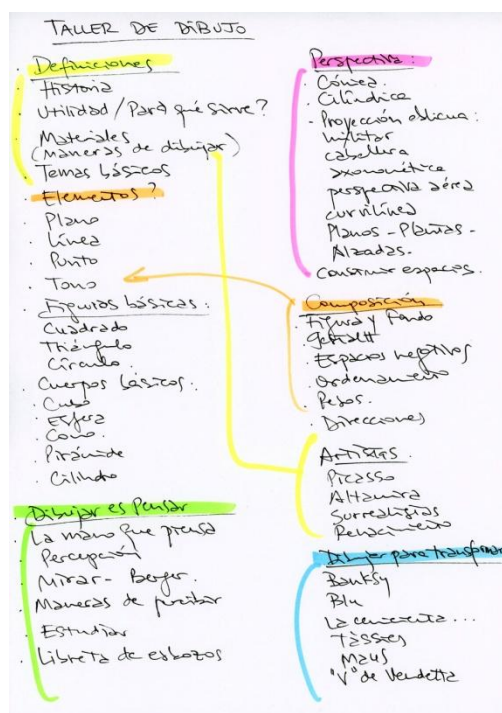 TALLER DE DIBUJO
. Definiciones
. Historia
. Utilidad / Para qué sirve?
. Materiales
(Maneras de dibujar)
. Temas básicos
. Elementos?
. Plano
. Línea
. Punto
. Tono
. Figuras básicas:
Cuadrado
Triángulo
Círculo
. Cuerpos básicos:
. Cubo
. Esfera
. Cono.
. Pirámide
. Cilindro
. Dibujar es Pensar
. La mano que piensa
. Percepción
. Mirar - Berger.
. Maneras de percibir
. Estudiar
. Libreta de esbozos
Perspectiva:
. Cónica.
. Cilíndrica
- Proyección oblicua:
militar
caballera
axonométrica
perspectiva aérea
curvilínea
Planos - Plantas -
Alzadas.
. Construir espacios.
. Composición
. Figura y Fondo
. Gestalt
. Espacios negativos
. Ordenamiento
. Pesos.
. Direcciones
. Artistas.
Picasso
Altamira
Surrealistas
Renacimiento
. Dibujar para transformar
Banksy
Blu
La cenicienta...
Tàssies
Maus
"V" de Vendetta